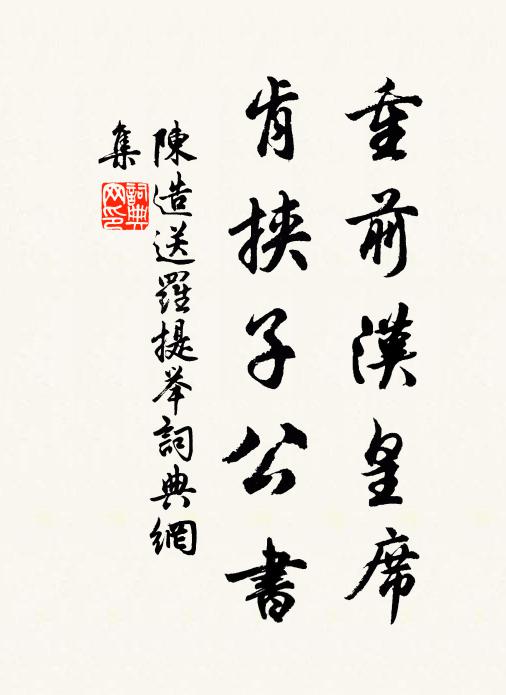 重前漢皇席
肯挾子公書
陳造送羅提举詞典網
集
詞典網印